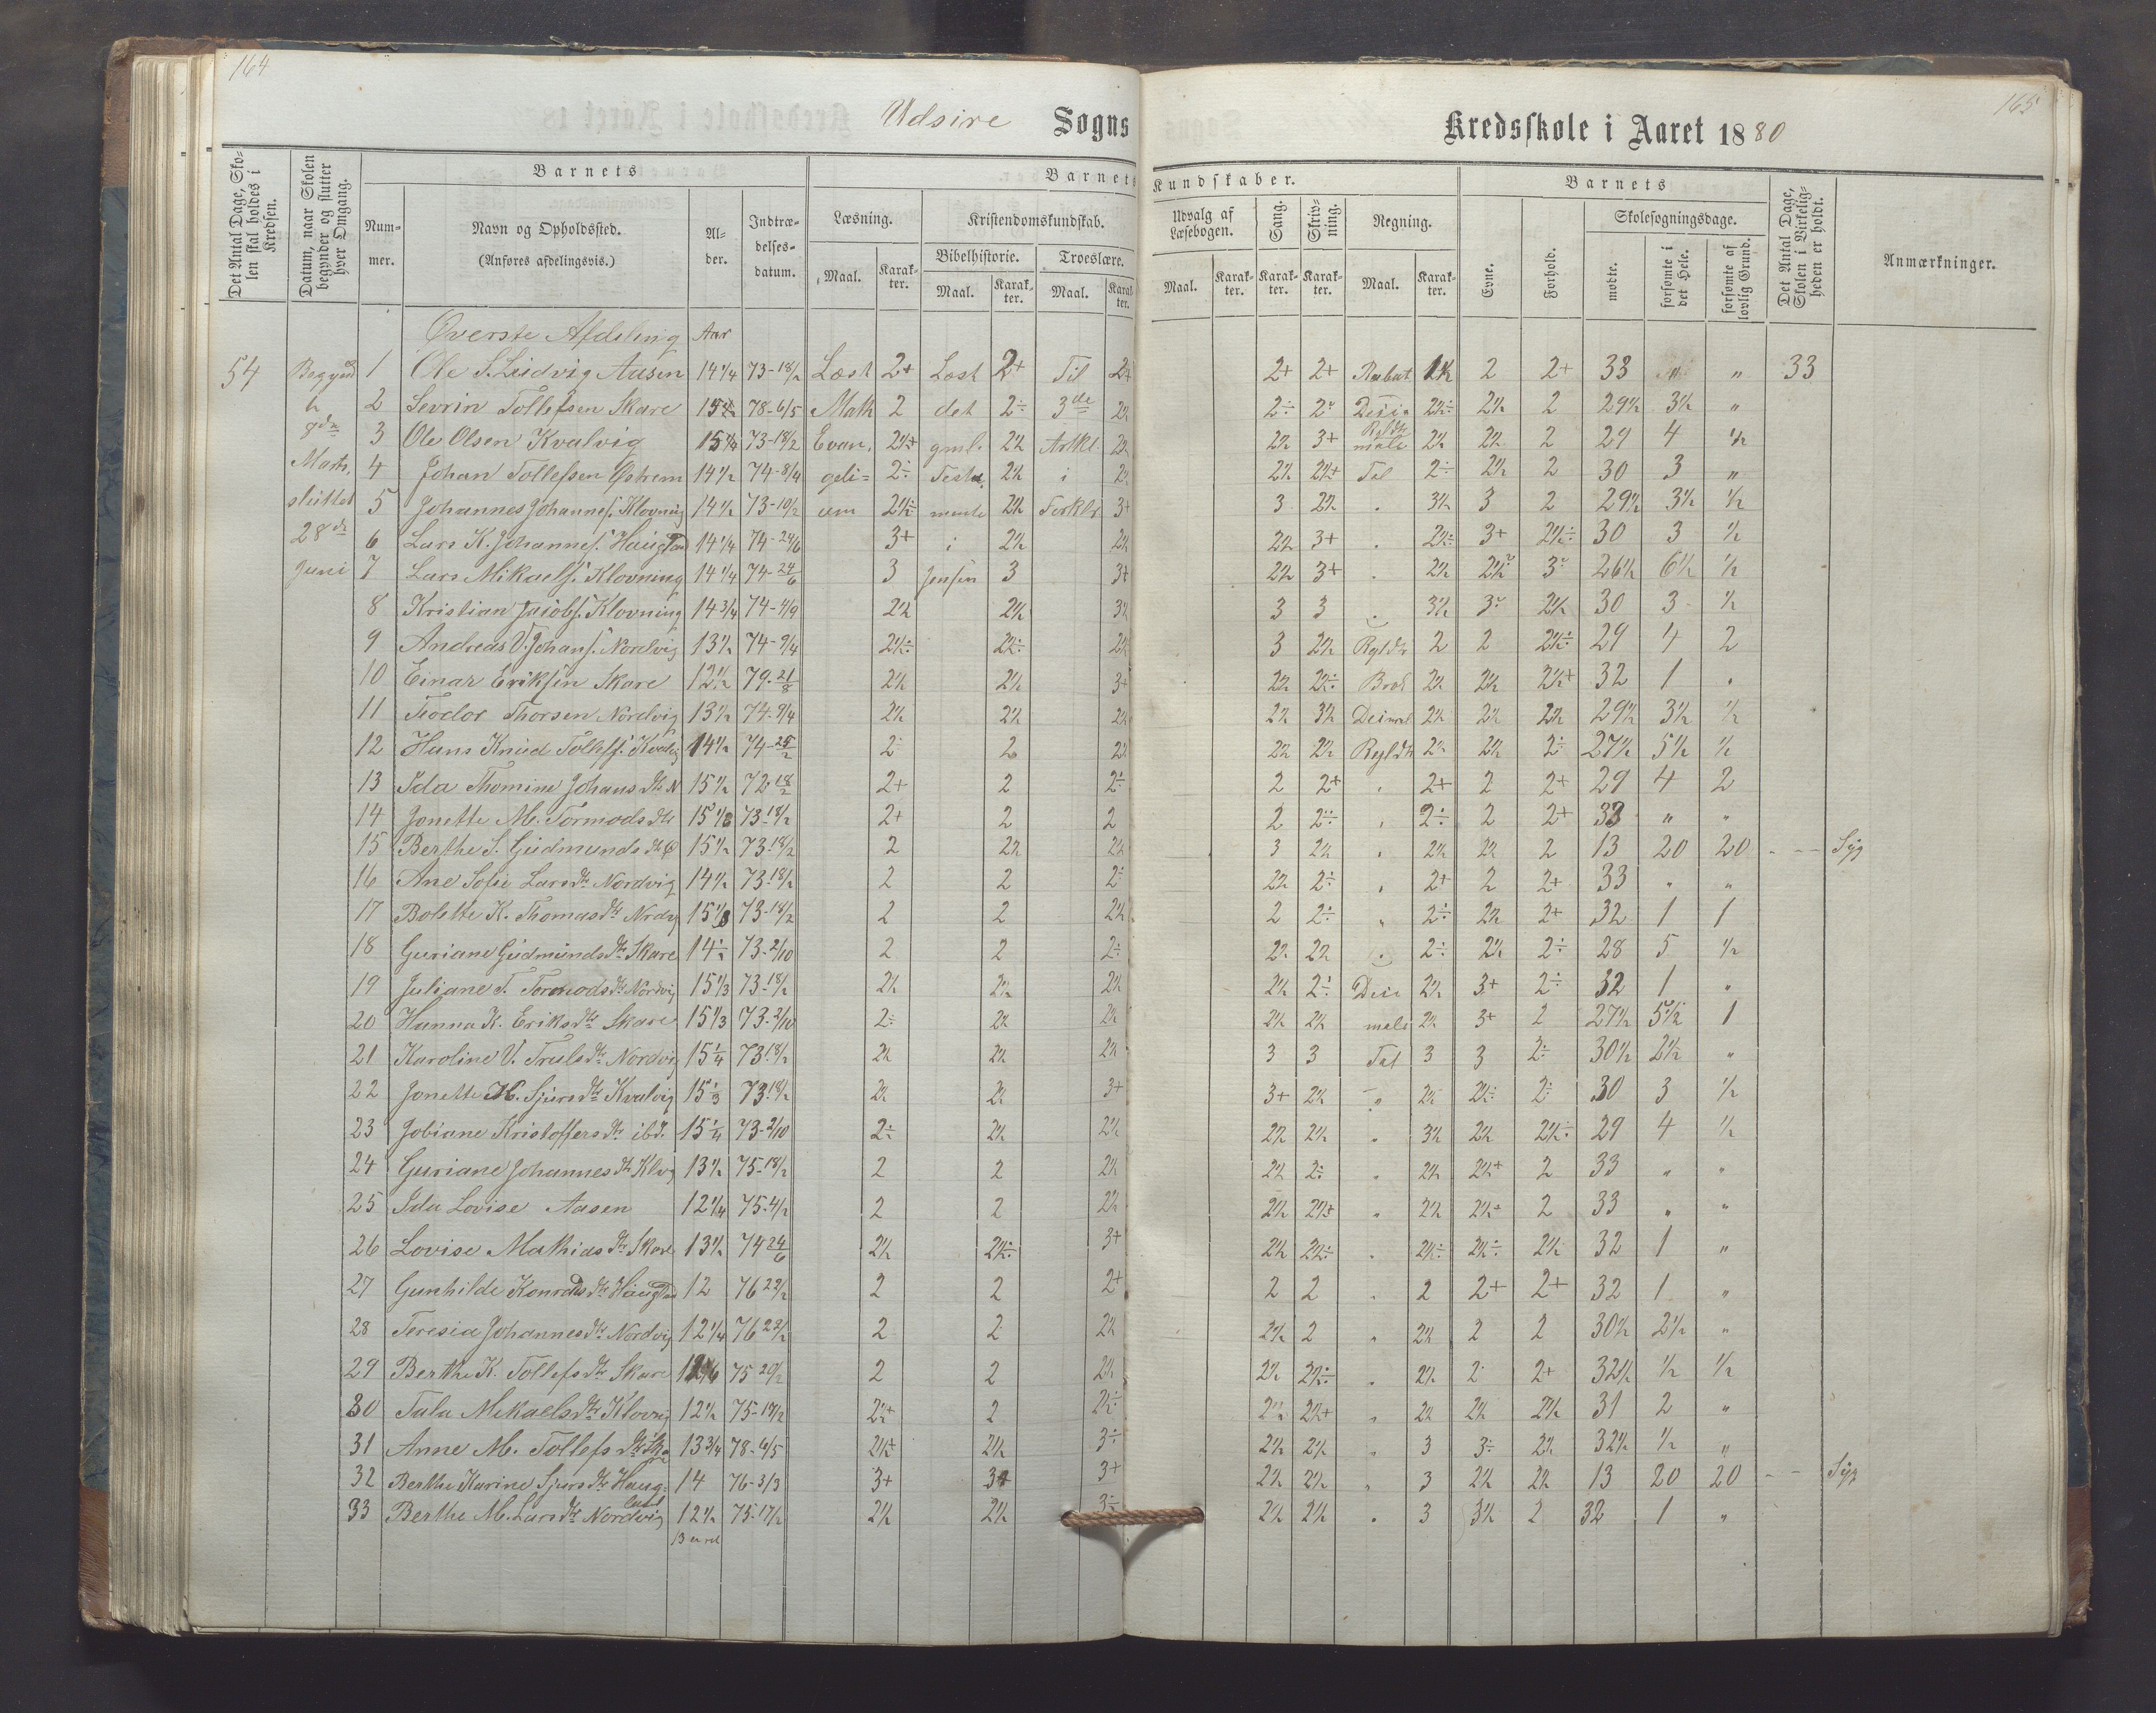 164
165
Udsire Sogns Kredsskole i Aaret 1880
Det Antal Dage, Skolen skal holdes i Kredsen.
Datum, naar Skolen begynder og slutter hver Omgang.
Barnets
Nummer.
Navn og Opholdssted.
(Anføres afdelingsvis.)
Alder.
Indtrædelsesdatum.
Barnets Kundskaber.
Læsning.
Maal.
Karakter.
Kristendomskundskab.
Bibelhistorie.
Maal.
Karakter.
Troeslære.
Maal.
Karakter.
Udvalg af Læsebogen.
Maal.
Karakter.
Sang.
Karakter.
Skrivning.
Karakter.
Regning.
Maal.
Karakter.
Barnets
Evne.
Forhold.
Skolesøgningsdage.
mødte.
forsømte i det Hele.
forsømte af lovlig Grund.
Det Antal Dage, Skolen i Virkeligheden er holdt.
Anmærkninger.
Øverste Afdeling Aar
54 1 Ole S. Ludvig Aasen 14 1/4 73-18/2 Læst 2+ Læst 2+ Til 2+ 2+ 2+ Rabat 2 2+ 33 " 33
2 Sevrin Tollefsen Skare 78-6/5 Math 2 det 2÷ 3de 2÷ 2 29½ 3½ "
8de 3 Ole Olsen Kvalvig 73-18/2 Evan. 2½+ gml. 2½ Artkl. 2½ 3+ 2½ 2½ 2 29 4 ½
Marts. 4 Johan Tollefsen Østrem 14½ 74-8/4 geli= 2÷ 2½ i 2½ 2½+ Tal 2÷ 2½ 2 30 3 "
sluttet 5 Johannes Johannes. Klovning 14½ 73-10/2 um 2½÷ mente 2½ Forklr 3+ 3 2½ 3½ 3 2 29½ 3½ ½
28de 6 Lars K. Johannes. Haugland 14 1/4 74-24/6 3+ i 2½ 2½ 2½ 3+ 2½÷ 3+ 2½÷ 30 3 ½
Juni 7 Lars Mikaels. Klovning 14 1/4 74-24/6 3 Jensen 3 3+ 2½ 3+ 2½ 26½ 6½ ½
8 Kristian Jakobs. Klovning 14 3/4 2½ 2½ 3½ 3 3 3½ 2½ 30 3 ½
9 Andreas V. Johans. Nordvig 13½ 74-9/4 2½÷ 2½÷ 2½ 3 2½ Rgldtr 2 2 2½÷ 29 4 2
10 Einar Eriksen Skare 12½ 79-21/8 2½ 2½ 3+ 2½ 2½÷ Brøk 2½ 2½ 2½+ 32 1
11 Teodor Thorsen Nordvig 13½ 74-9/4 2½ 2½ 2½ 2½ 3½ 2½ 2½ 2½ 29½ 3½ ½
12 Hans Knud Tollefs. Kvalvig 14½ 74-25/2 2÷ 2 2½ 2½ 2½ Rgldtr 2½ 2½ 2÷ 27½ 5½ ½
13 Ida Thomine Johansdtr N 15½ 72-18/2 2+ 2 2÷ 2 2+ 2+ 2 2+ 29 4 2
14 Jonette M. Tormodsdtr 73-18/2 2+ 2 2 2 2÷ 2÷ 2 2+ 33 " "
15 Berthe S. Gudmundsdtr 15½ 73-18/2 2 2½ 2½ 3 2½ 2½ 2½ 2 13 20 20 - -- Syg
16 Ane Sofie Larsdtr Nordvig 14½ 73-18/2 2 2 2÷ 2½ 2÷ 2+ 2 2+ 33 " "
17 Bolette K. Thomasdtr Nordvg 73-18/2 2 2 2½ 2 2÷ 2÷ 2½ 2+ 32 1 1
18 Guriane Gudmundsdtr Skare 14½ 73-2/10 2 2 2÷ 2½ 2½ 2÷ 2½ 2÷ 28 5 ½
19 Juliane T. Tormodsdtr Nordvig 15 1/3 73-18/2 2½ 2½ 2½ 2½ 2÷ Deci 2½ 3+ 2÷ 32 1 "
20 Hanna K. Eriksdtr Skare 15 1/3 73-2/10 2÷ 2½ 2½ 2½ 2½ male 2½ 3+ 2 27½ 5½ 1
21 Karoline V. Trulsdtr Nordvi 15 1/4 73-18/2 2½ 2½ 2½ 3 3 Tal 3 3 2÷ 30½ 2½ "
22 Jonette H. Sjursdtr Kvalvig 15 1/3 73-18/2 2½ 2½ 3+ 3+ 2½ " 2½ 2½÷ 2÷ 30 3 ½
23 Jobiane Kristoffersdtr ibd. 15 1/4 73-2/10 2÷ 2½ 2½ 2½ 2½ " 3½ 2½ 2½÷ 29 4 ½
24 Guriane Johannesdtr Klvg 13½ 75-18/2 2 2 2½ 2½ 2÷ " 2½ 2½+ 2 33 " "
25 Ida Lovise Aasen 12 1/4 75-4/2 2 2 2½ 2½ 2½+ " 2½ 2½+ 2 33 " "
26 Lovise Mathiasdtr Skare 13½ 74-24/6 2½ 2½÷ 3+ 2½ 2½÷ 2½÷ 2½÷ 2½ 32 1 "
27 Gunhilde Konradsdtr Haugland 12 2 2 2+ 2 2 2 2+ 2+ 32 1 "
28 Teresia Johannesdtr Nordvig 12 1/4 2 2 2½ 2½ 2 " 2½ 2 2 30½ 2½ "
29 Berthe K. Tollefsdtr Skare 75-20/2 2 2 2½ 2½ 2½÷ 2½ 2 2+ 32½ ½ ½
30 Tala Mikaelsdtr Klovnig 12½ 75-18/2 2½+ 2 2½÷ 2½ 2½+ " 2½ 2½ 2½ 31 2 "
31 Anne M. Tollefsdtr Ska 13 3/4 78-6/5 2½+ 2½ 3÷ 2½ 2½ " 3 3÷ 2½ 32½ ½ "
32 Berthe Karine Sjursdtr Haug= land 14 76-3/3 3+ 3+ 3+ 2½ 2½ " 3 2½ 2½ 13 20 20 - - Syg
33 Berthe M. Larsdtr Nordvig 12½ 75-17/2 2½ 2½ 3÷ 2½ 2½ 3 3½ 2 32 1 "